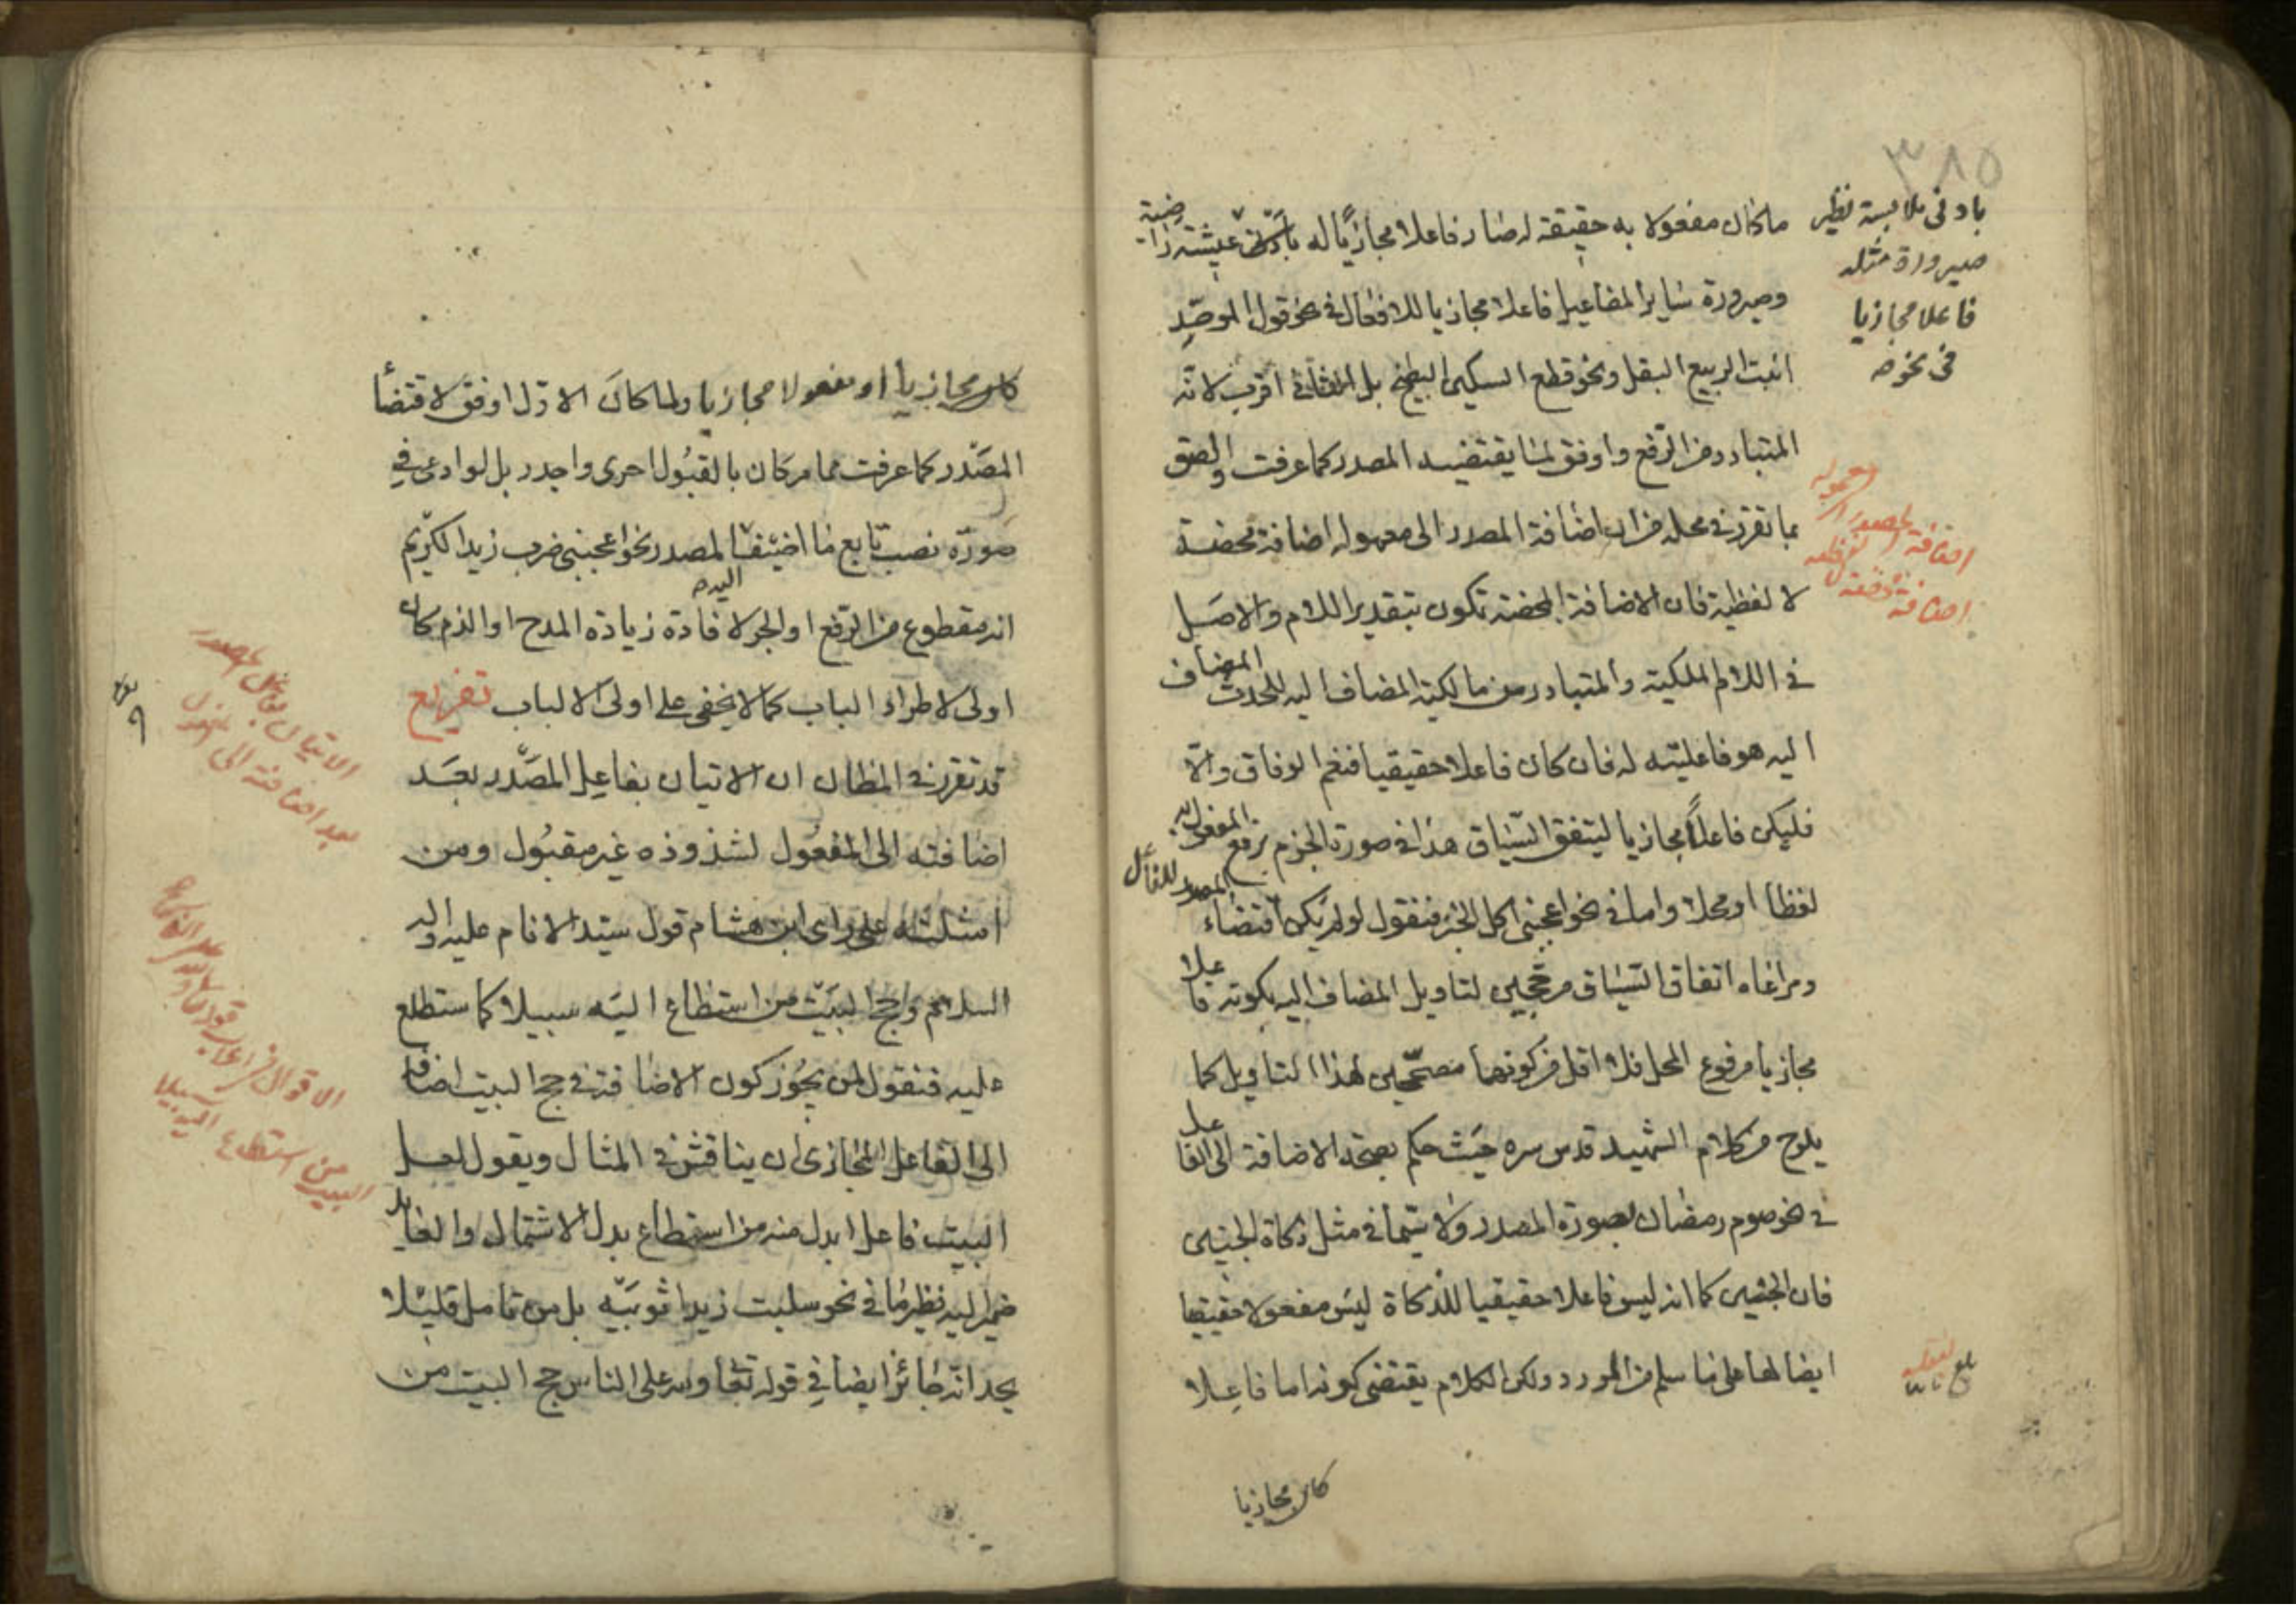 ٣٨٥
ما كان مفعولا به حقيقة له صار فاعلا مجازيا له عيشة راضية
وصيرورة ساير المفاعيل فاعلا مجازيا للافعال في نحو قول الموحّد
انبت الربيع البقل ونحو قطع السكين البطيخ بل الثاني اقرب لانّه
المتبادر من الرّفع واوفق لما يقتضيه المصدر كما عرفت والصق
بما تقرر في محله من ان اضافة المصدر الى معموله اضافة محضة
لا لفظية فان الاضافة المحضة تكون بتقدير اللام والاصل
في اللام الملكية والمتبادر من مالكية المضاف اليه للحدث المضاف
اليه هو فاعليته له فان كان فاعلا حقيقيا فنعم الوفاق والّا
فليكن فاعلاً مجازيا ليتفق السّياق هذا في صورة الجزم برفع المفعول به
لفظا او محلا واما في نحو اعجبنى اكل الخبز فنقول لو لم يكن اقتضاء المصدر للفاعل
ومراعاة اتفاق السّياق مرجّحين لتاويل المضاف اليه بكونه فاعلا
مجازيا مرفوع المحل فلا اقل من كونهما مصحّحين لهذا التاويل كما
يلوح من كلام الشهيد قدس سره حيث حكم بصحة الاضافة الى الفاعل
في نحو صوم رمضان بصورة المصدر ولا سيّما في مثل ذكاة الجنين
فان الجنين كما انه ليس فاعلا حقيقيا للذكاة ليس مفعولا حقيقيا
ايضا لها على ما سلم من المورد ولكن الكلام يقتضى كونه اما فاعلا
كان مجازيا
بادنى ملابسة نظير
صيرورة مثله
فاعلا مجازيا
في نحو
اضافة المصدر الى معموله
اضافة محضة لا لفظية
بلغ
كان مجازيا او مفعولا مجازيا ولما كان الاوّل اوفق لاقتضاء
المصدر كما عرفت مما مر كان بالقبول احرى واجدر بل لو ادعى في
صورة نصب تابع ما اضيف المصدر اليه نحو اعجبنى ضرب زيد الكريم
انه مقطوع من الرفع او الجر لافادة زيادة المدح او الذم كان
اولى لاطراد الباب كما لا يخفى على اولى الالباب تفريع
قد تقرر في المظان ان الاتيان بفاعل المصدر بعد
اضافته الى المفعول لشذوذه غير مقبول ومن
امثلته على راى ابن هشام قول سيّد الانام عليه واله
السلام وحج البيت من استطاع اليه سبيلا كما ستطلع
عليه فنقول لمن يجوّز كون الاضافة في حج البيت اضافة
الى الفاعل المجازى ان يناقش في المثال ويقول لعل
البيت فاعل ابدل منه من استطاع بدل الاشتمال والعايد
ضمير اليه نظير ما في نحو سلبت زيدا ثوبيه بل من تامل قليلا
يجد انّه جائز ايضا في قوله تعالى ولله على الناس حج البيت من
الاتيان بفاعل المصدر
بعد اضافته الى المفعول
الاقوال في اعراب قوله
البيت من استطاع اليه سبيلا